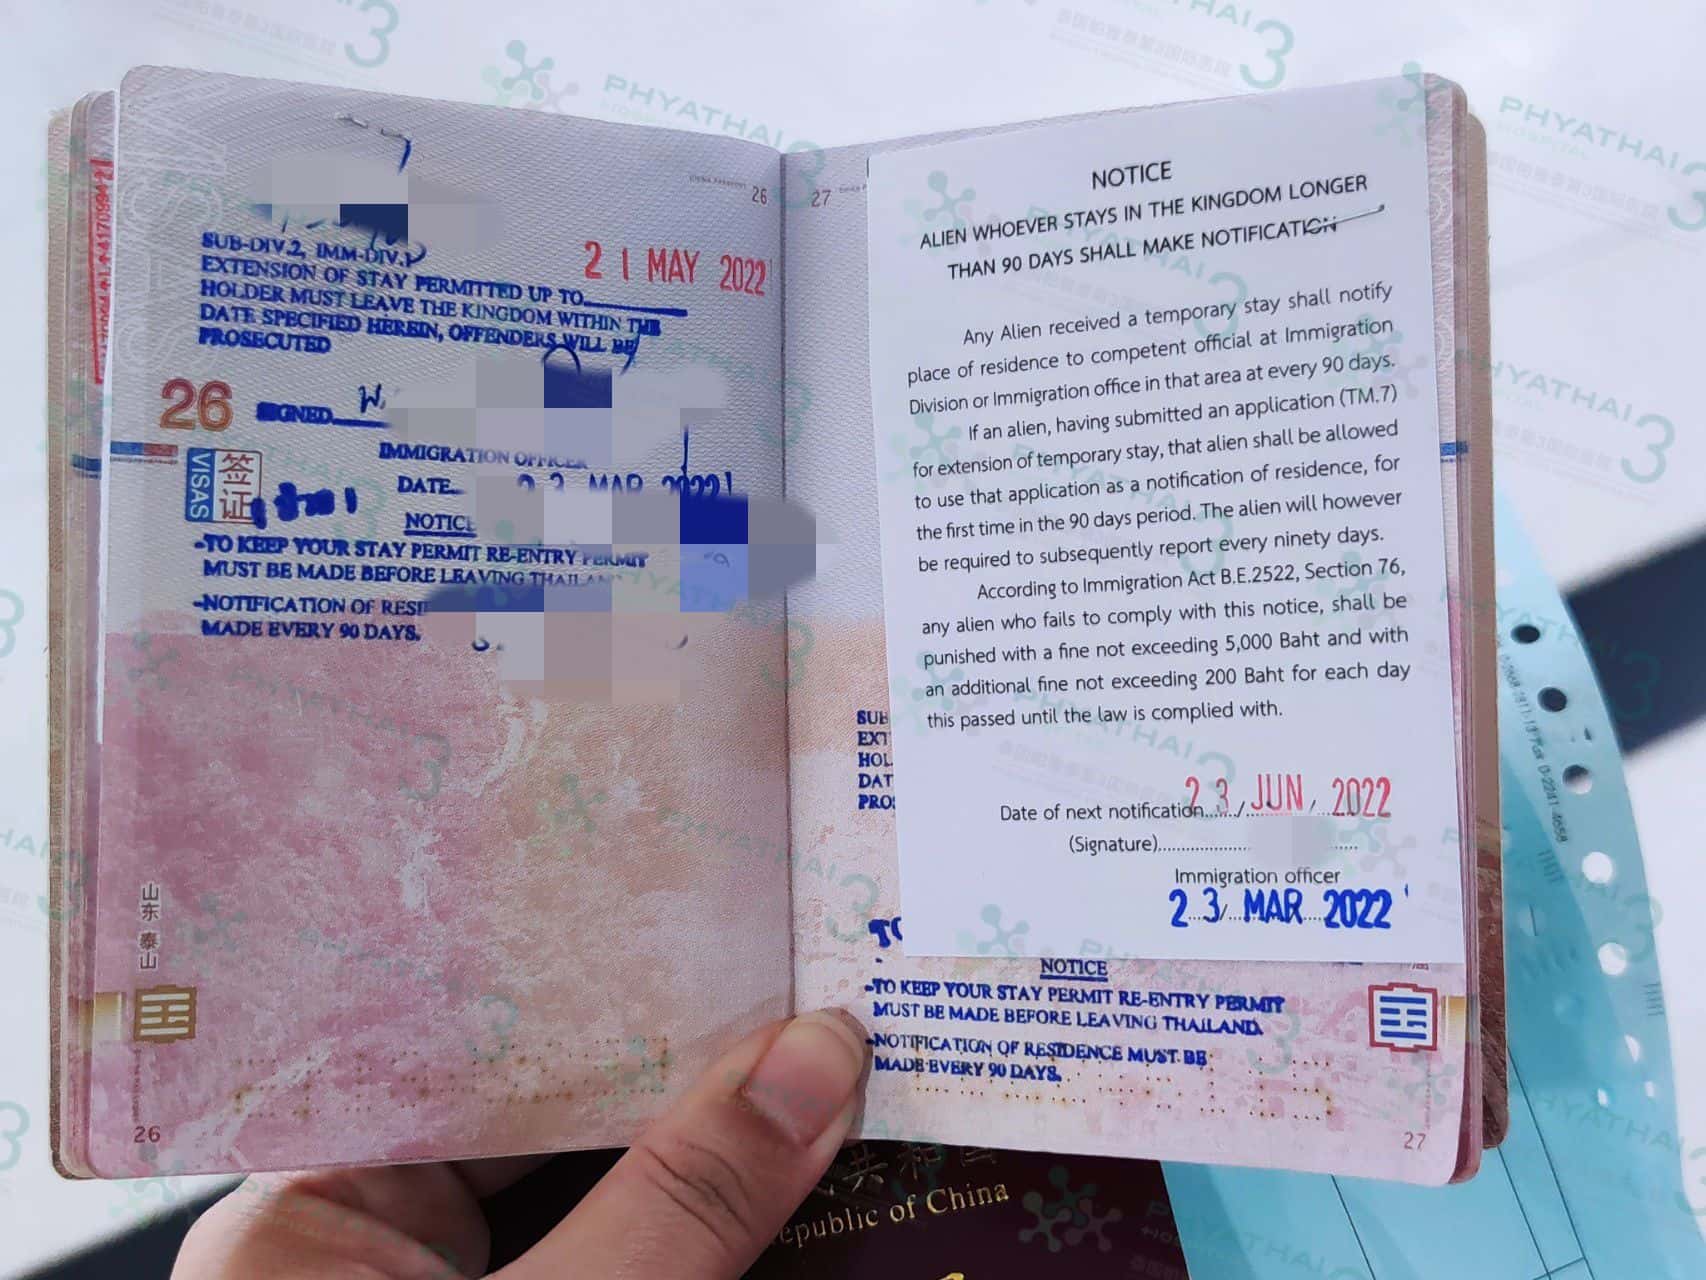 CHINA PASSPORT 26
SUB-DIV.2, IMM-DIV.1
21 MAY 2022
EXTENSION OF STAY PERMITTED UP TO
HOLDER MUST LEAVE THE KINGDOM WITHIN THE
DATE SPECIFIED HEREIN, OFFENDERS WILL BE
PROSECUTED
26
SIGNED
VISAS
签证
IMMIGRATION OFFICER
DATE 23 MAR 2022
NOTICE
-TO KEEP YOUR STAY PERMIT RE-ENTRY PERMIT
MUST BE MADE BEFORE LEAVING THAILAN
-NOTIFICATION OF RESI
MADE EVERY 90 DAYS.
山东 泰山
26
27
NOTICE
ALIEN WHOEVER STAYS IN THE KINGDOM LONGER
THAN 90 DAYS SHALL MAKE NOTIFICATION
Any Alien received a temporary stay shall notify
place of residence to competent official at Immigration
Division or Immigration office in that area at every 90 days.
If an alien, having submitted an application (TM.7)
for extension of temporary stay, that alien shall be allowed
to use that application as a notification of residence, for
the first time in the 90 days period. The alien will however
be required to subsequently report every ninety days.
According to Immigration Act B.E.2522, Section 76,
any alien who fails to comply with this notice, shall be
punished with a fine not exceeding 5,000 Baht and with
an additional fine not exceeding 200 Baht for each day
this passed until the law is complied with.
Date of next notification 23 / JUN / 2022
(Signature)
Immigration officer
23 / MAR 2022
SUB
EXT
HOL
DAT
PRO
NOTICE
-TO KEEP YOUR STAY PERMIT RE-ENTRY PERMIT
MUST BE MADE BEFORE LEAVING THAILAND.
-NOTIFICATION OF RESIDENCE MUST BE
MADE EVERY 90 DAYS.
27
共和国
epublic of China
PHYATHAI 3
HOSPITAL